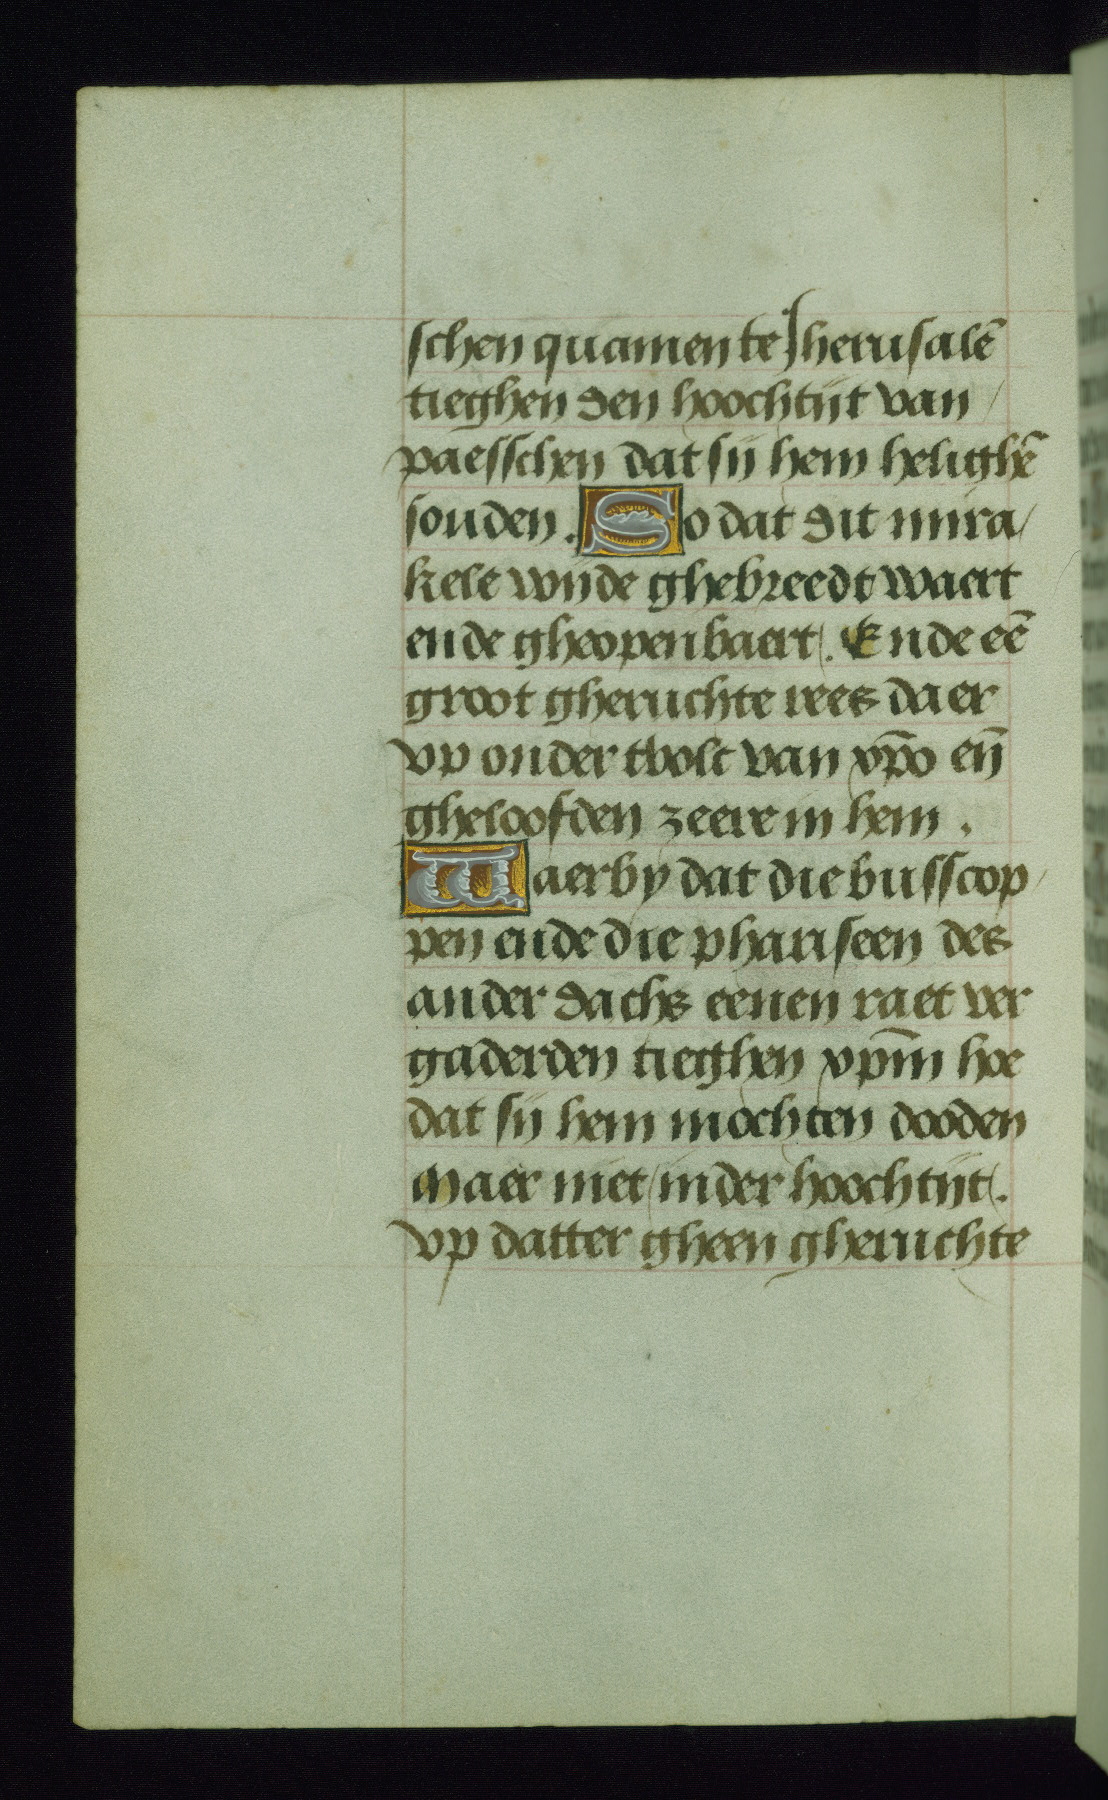 schen quamen te Jherusalē
tieghen den hoochtijt van
paesschen dat sij hem helighē
souden. So dat dit mira
kele wijde ghebreedt waert
ende gheopenbaert. Ende eē
groot gheruchte rees daer
vp onder tvolc van xp̄o en̄
gheloofden zeere in hem.
Waerby dat die busscop
pen ende die phariseen des
ander dachs eenen raet ver
gaderden tieghen xp̄m hoe
dat sij hem mochten dooden
Maer niet in der hoochtijt.
vp datter gheen gheruchte